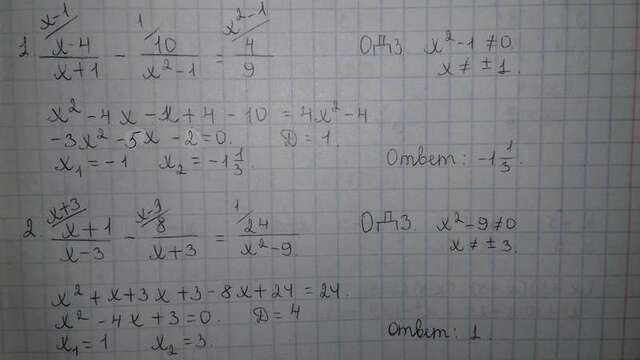 1. x-4 / x+1 (x-1) - 10 / x²-1 (1) = 4 / 9 (x²-1) ОДЗ x²-1≠0
x≠±1.
x²-4x-x+4-10=4x²-4
-3x²-5x-2=0. D=1.
x₁=-1 x₂=-1 1/3. Ответ: -1 1/3.
2 x+1 / x-3 (x+3) - 8 / x+3 (x-3) = 24 / x²-9 (1) ОДЗ. x²-9≠0
x≠±3.
x²+x+3x+3-8x+24=24.
x²-4x+3=0. D=4
x₁=1 x₂=3. Ответ: 1.